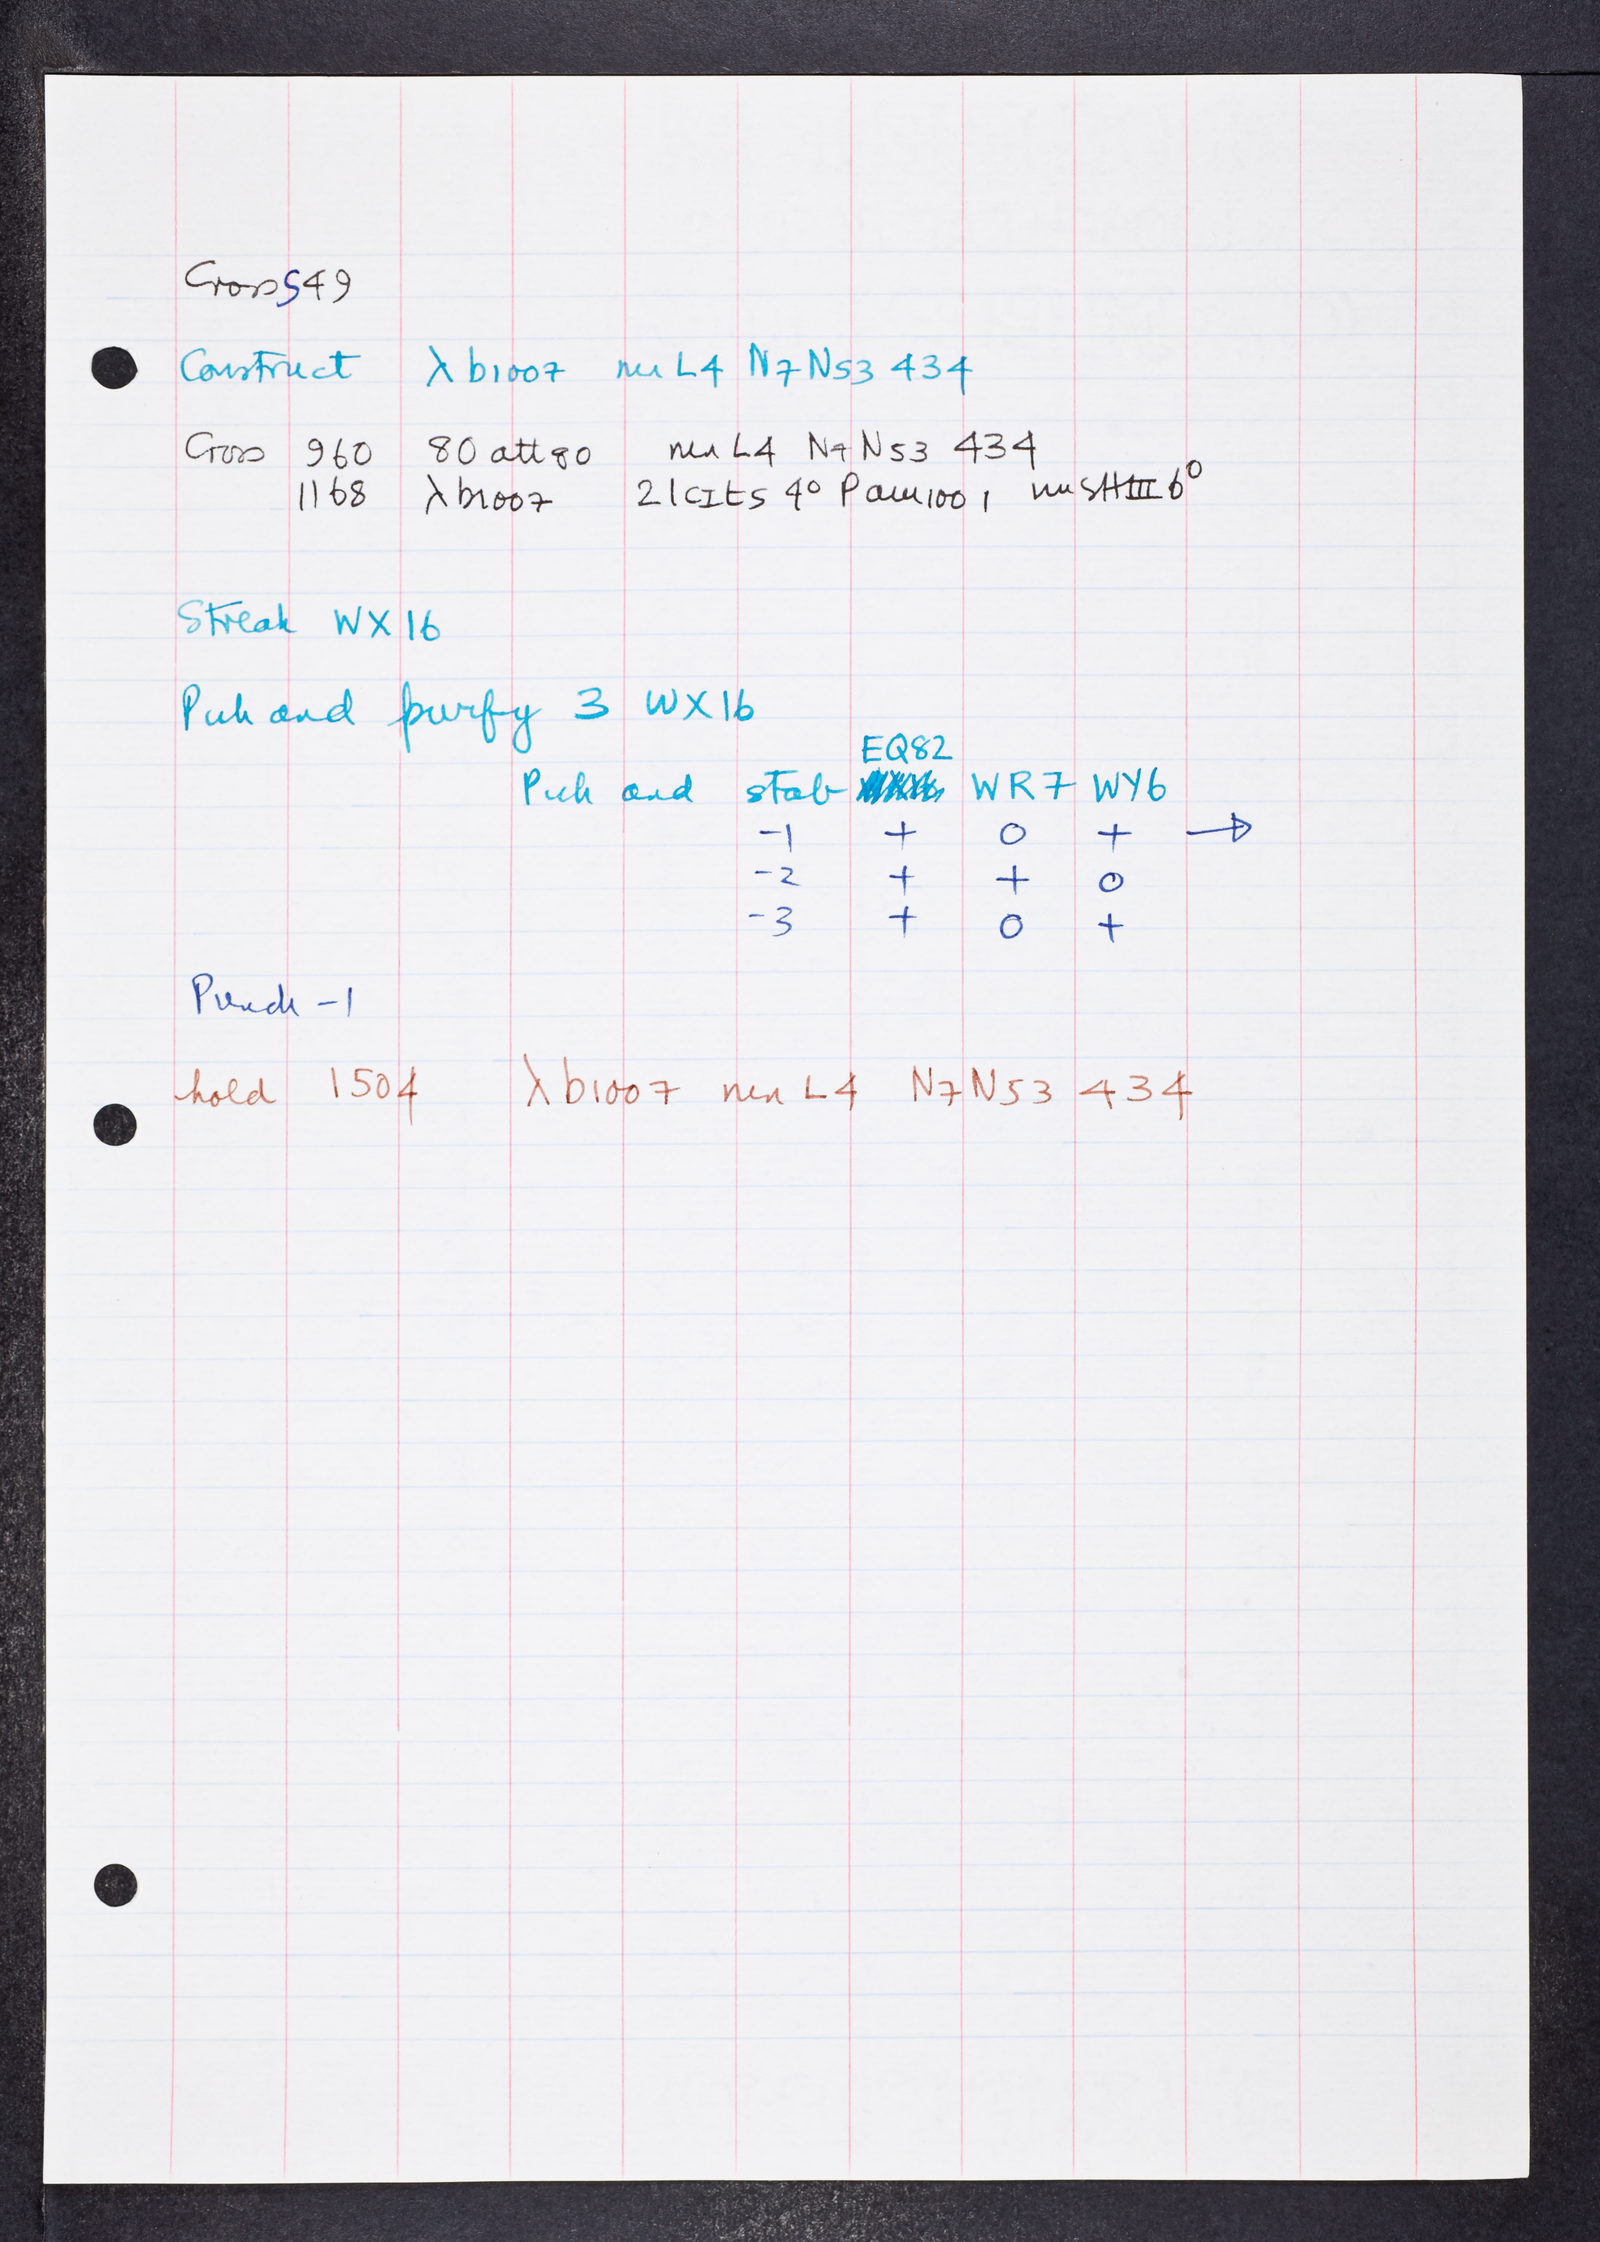 Cross 549
Construct λ b1007 nin L4 N7 N53 434
Cross 960 80 att80 nin L4 N7 N53 434
1168 λ b1007 21 cIts 4° Pam1001 nin5 HIII 6°
Streak WX16
Pick and purify 3 WX16
EQ82
Pick and stab WR7 WY6
-1 + 0 + →
-2 + + 0
-3 + 0 +
Punch -1
hold 1504 λ b1007 nin L4 N7 N53 434